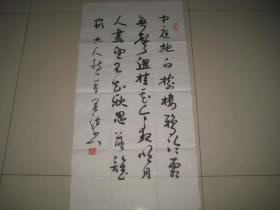 中庭地白树栖鸦冷露
无声湿桂花今夜明月
人尽望不知秋思落谁
家 古人诗